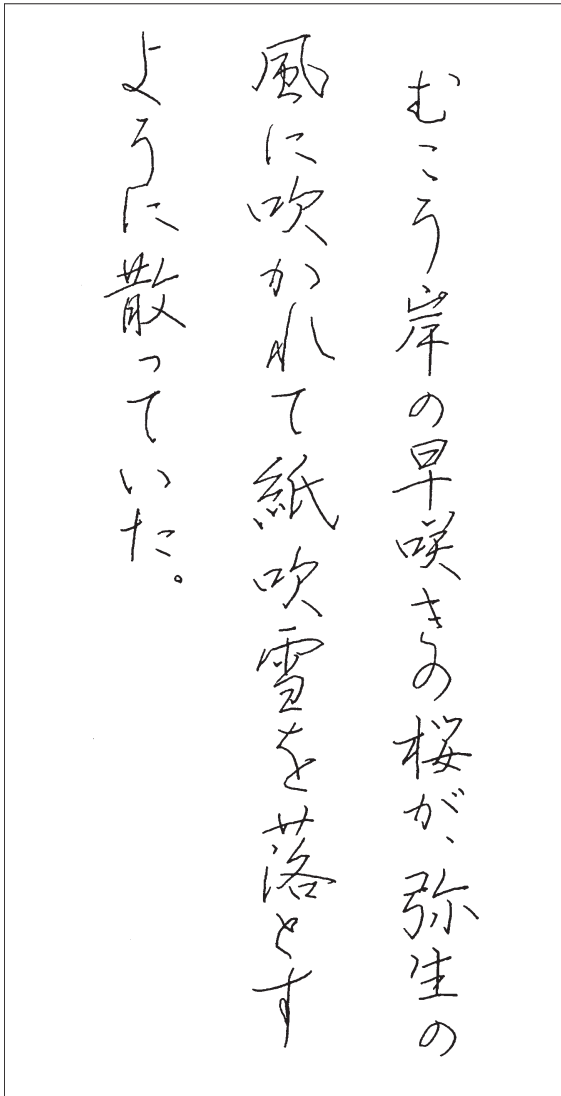 むこう岸の早咲きの桜が、弥生の
風に吹かれて紙吹雪を落とす
ように散っていた。